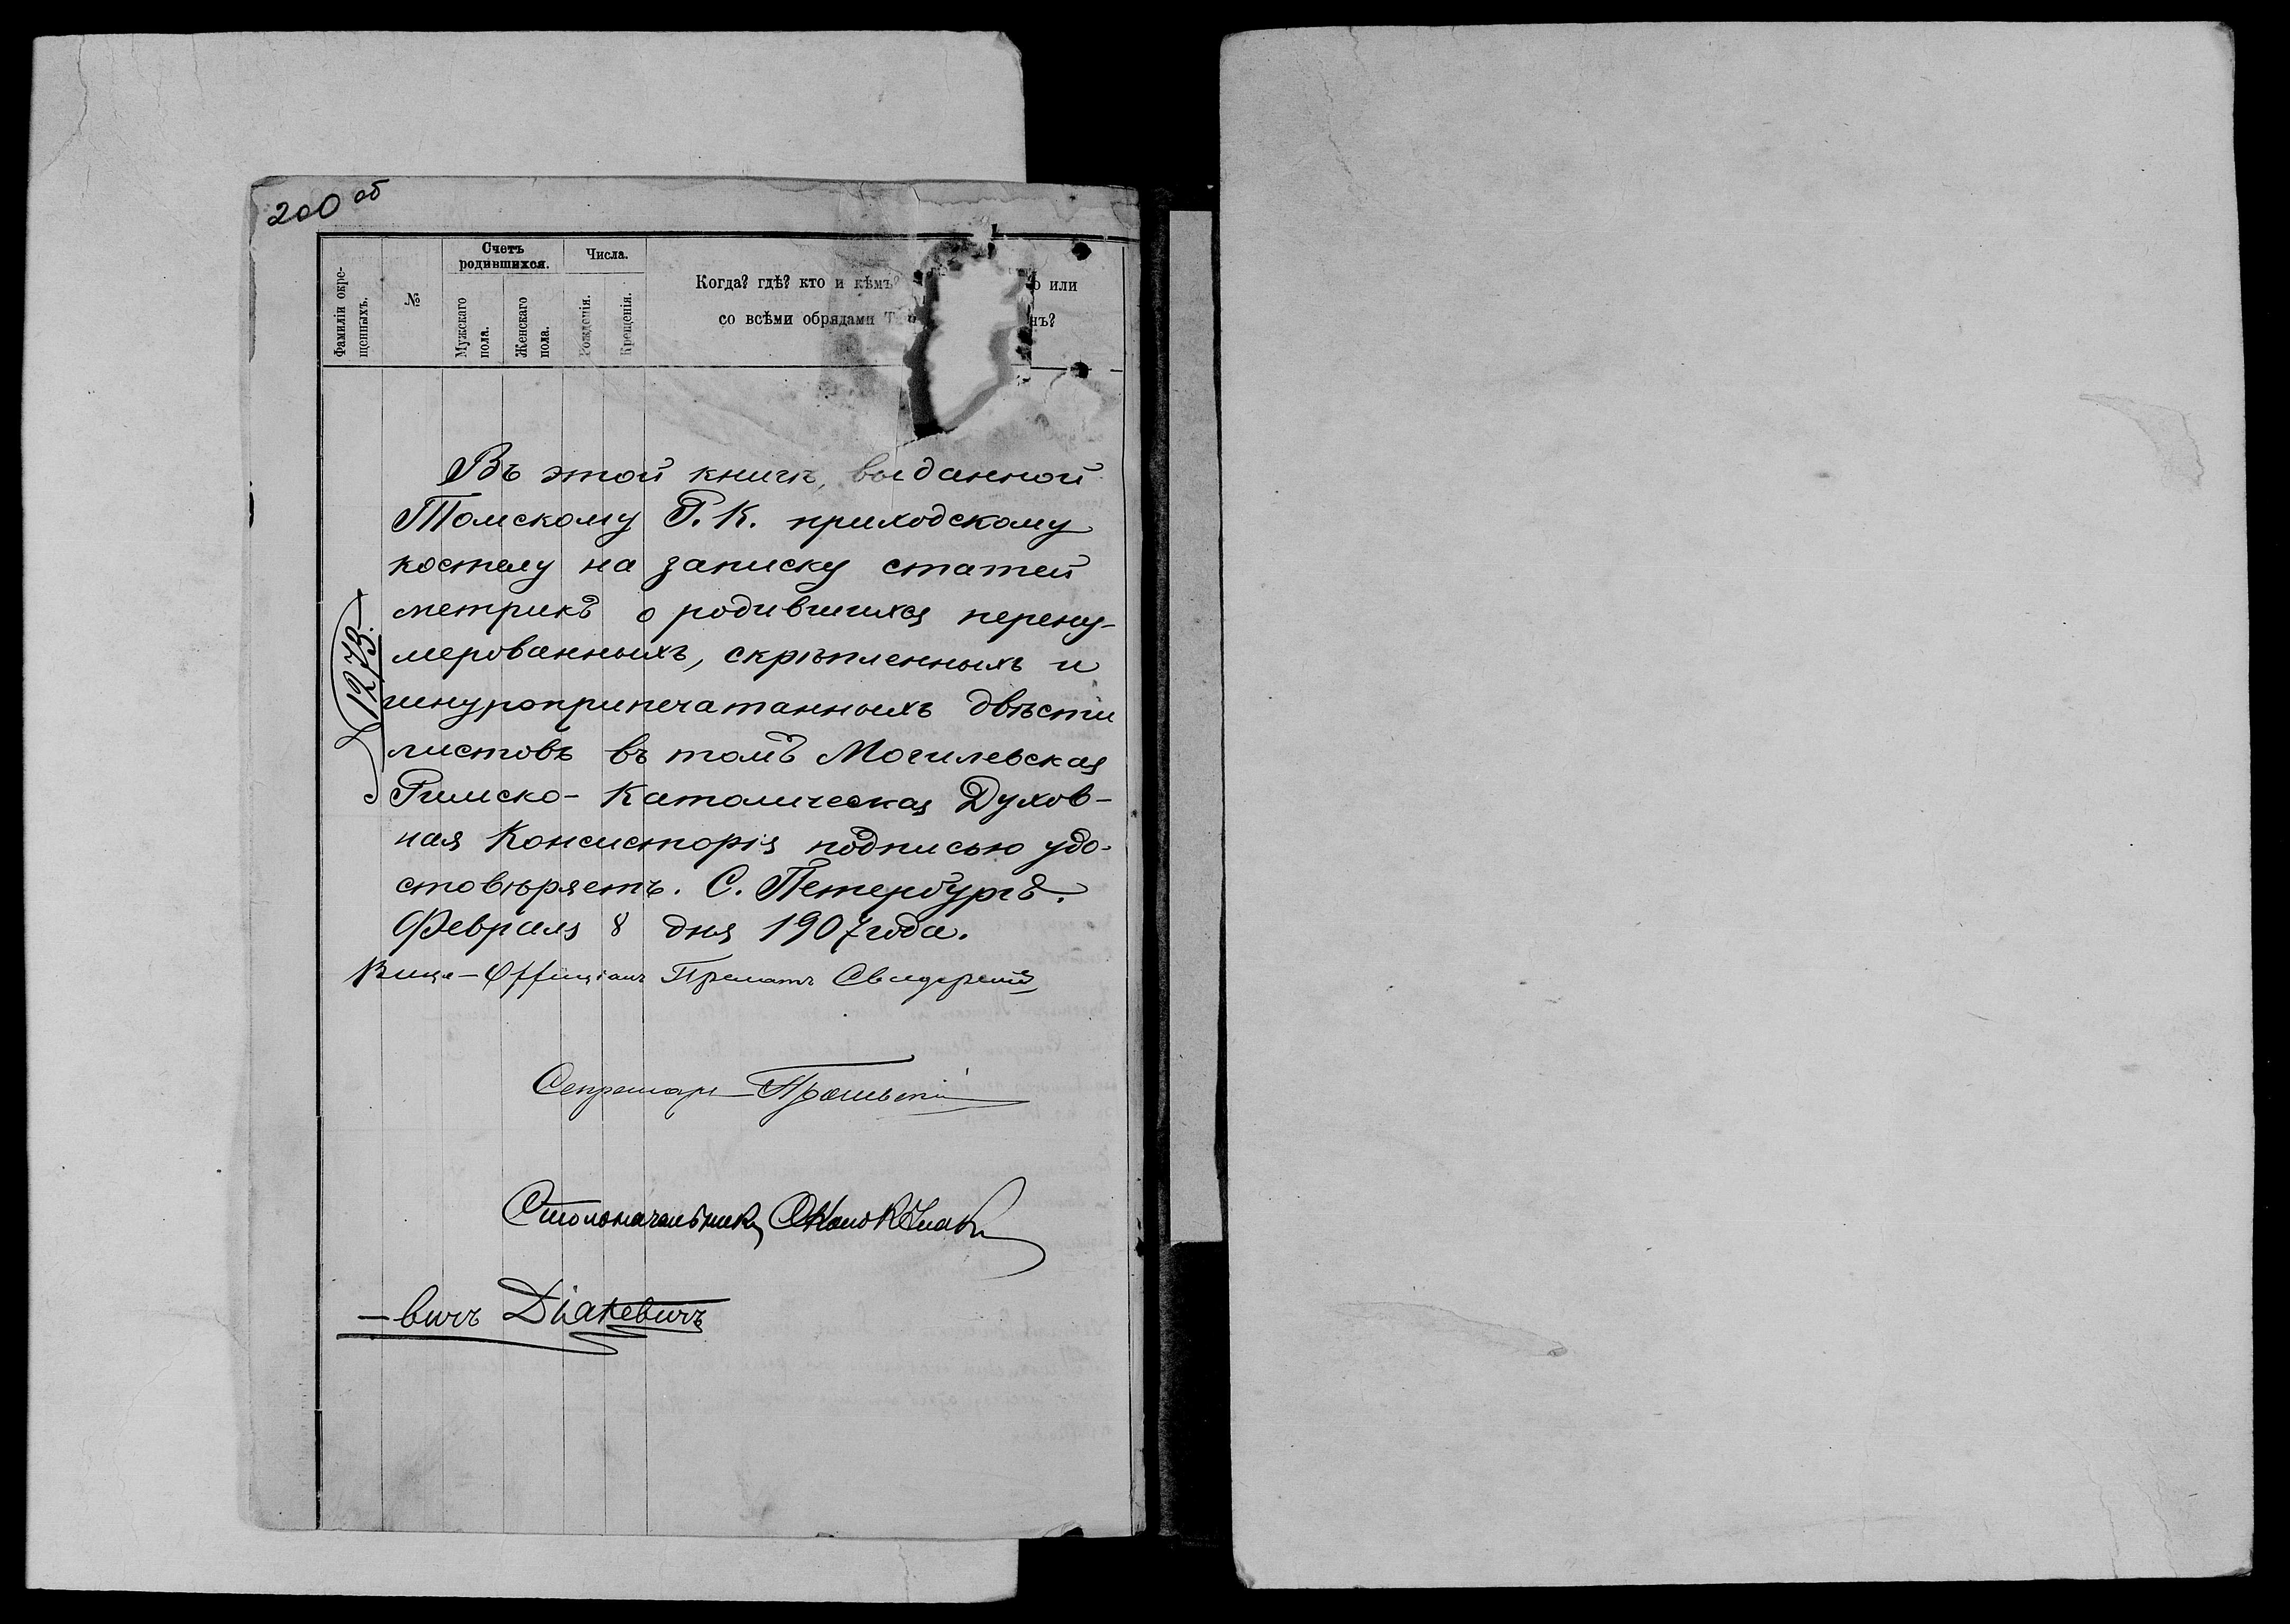 200 об
Фамиліи окре-
щенныхъ.
№
Счетъ
родившихся.
Мужскаго
пола.
Женскаго
пола.
Числа.
Рожденія.
Крещенія.
Когда? гдѣ? кто и кѣмъ? о или
со всѣми обрядами нъ?
Въ этой книгѣ, выданной
Томскому Р. К. приходскому
костелу на записку статей
метрикъ о родившихся перену-
мерованныхъ, скрѣпленныхъ и
шнуроприпечатанныхъ двѣсти
листовъ въ томъ Могилевская
Римско- Католическая Духов-
ная Консисторія подписью удо-
стовѣряетъ. С. Петербургъ.
Февраля 8 дня 1907 года.
1273.
Вице-Оффиціалъ Прелатъ
Секретарь
Столоначальникъ
— вичъ Діакевичъ